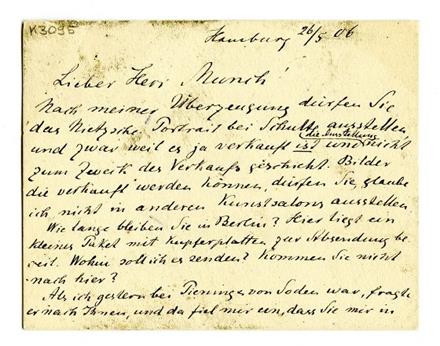 K3095
Hamburg 26/5 06
Lieber Herr Munch!
Nach meiner Überzeugung dürfen Sie
das Nietzsche Portrait bei Schulte ausstellen,
und zwar weil es ja verkauft ist und die Ausstellung nicht
zum Zweck des Verkaufs geschieht. Bilder
die verkauft werden können, dürfen Sie, glaube
ich, nicht in anderen Kunstsalons ausstellen.
Wie lange bleiben Sie in Berlin? Hier liegt ein
kleines Paket mit Kupferplatten zur Absendung be-
reit. Wohin soll ich es senden? Kommen Sie nicht
nach hier?
Als ich gestern bei von Soden war, fragte
er nach Ihnen, und da fiel mir ein, dass Sie mir in